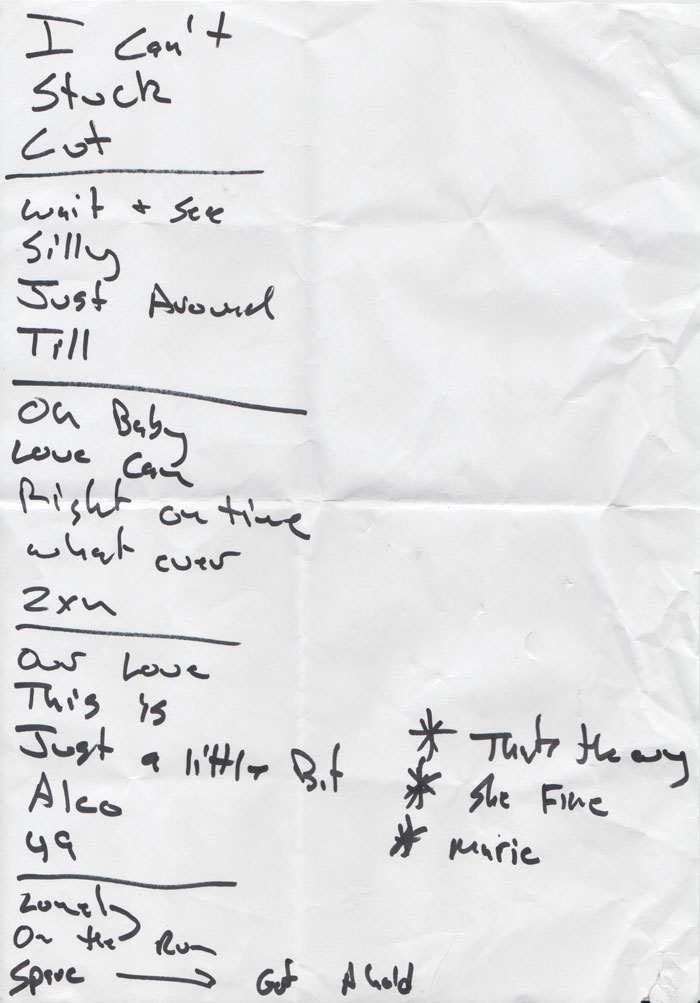 I Can't
Stuck
Cut
Wait + See
Silly
Just Around
Till
Oh Baby
Love Can
Right on time
what ever
2xu
Our Love
This is
Just a little Bit
Alco
49
Lonely
On the Run
Spare → Got A hold
* That's the way
* She Fine
* Music